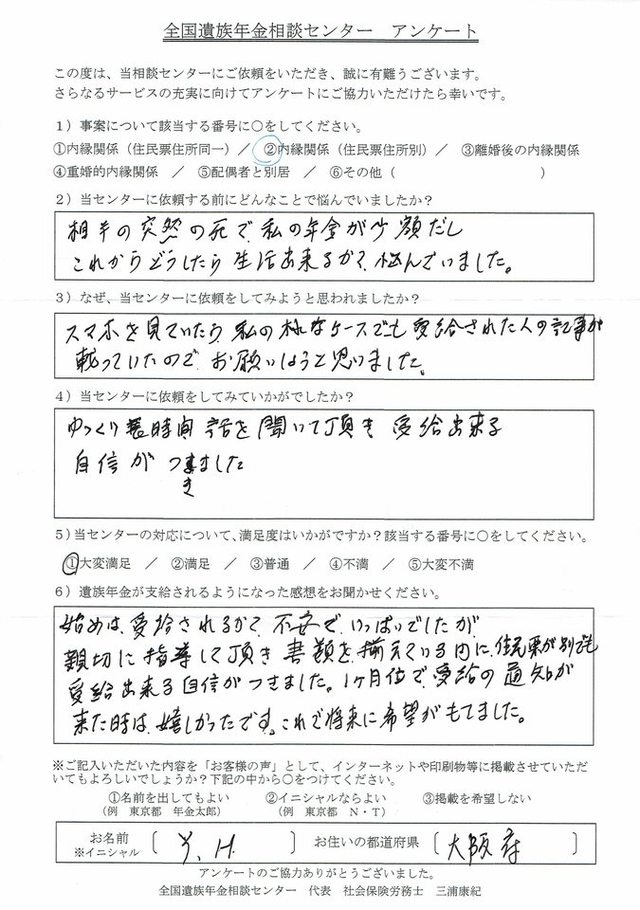 全国遺族年金相談センター　アンケート
この度は、当相談センターにご依頼をいただき、誠に有難うございます。
さらなるサービスの充実に向けてアンケートにご協力いただけたら幸いです。
1）事案について該当する番号に○をしてください。
①内縁関係（住民票住所同一）／　②内縁関係（住民票住所別）／　③離婚後の内縁関係
④重婚的内縁関係　／　⑤配偶者と別居　／　⑥その他（　　　　　　　　　　）
2）当センターに依頼する前にどんなことで悩んでいましたか？
相手の突然の死で、私の年金が少額だし
これからどうしたら生活出来るかで、悩んでいました。
3）なぜ、当センターに依頼をしてみようと思われましたか？
スマホを見ていたら私の様なケースでも受給された人の記事が
載っていたので、お願いしようと思いました。
4）当センターに依頼をしてみていかがでしたか？
ゆっくり長時間話を聞いて頂き受給出来る
自信がつきました
き
5）当センターの対応について、満足度はいかがですか？該当する番号に○をしてください。
①大変満足　／　②満足　／　③普通　／　④不満　／　⑤大変不満
6）遺族年金が支給されるようになった感想をお聞かせください。
始めは、受給されるかで、不安で、いっぱいでしたが、
親切に指導して頂き書類を揃えている内に、住民票が別でも
受給出来る自信がつきました。1ヶ月位で、受給の通知が
来た時は、嬉しかったです。これで将来に希望がもてました。
※ご記入いただいた内容を「お客様の声」として、インターネットや印刷物等に掲載させていただ
いてもよろしいでしょうか？下記の中から○をつけてください。
①名前を出してもよい　②イニシャルならよい　③掲載を希望しない
（例　東京都　年金太郎）　（例　東京都　N・T）
お名前　〔 Y. H. 〕　お住いの都道府県　〔 大阪府 〕
※イニシャル
アンケートのご協力ありがとうございました。
全国遺族年金相談センター　代表　社会保険労務士　三浦康紀